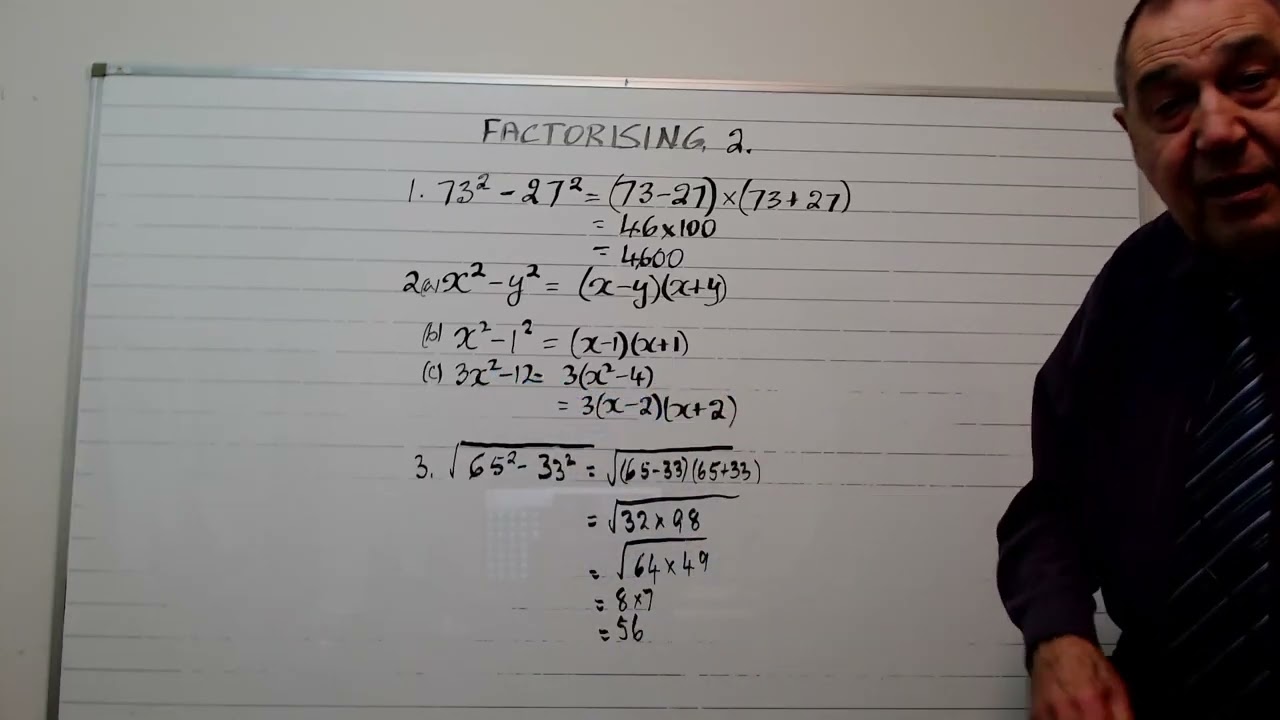 FACTORISING 2.
1. 73² - 27² = (73-27)×(73+27)
= 46×100
= 4600
2(a) x² - y² = (x-y)(x+y)
(b) x² - 1² = (x-1)(x+1)
(c) 3x² - 12 = 3(x²-4)
= 3(x-2)(x+2)
3. √65² - 33² = √(65-33)(65+33)
= √32×98
= √64×49
= 8×7
= 56